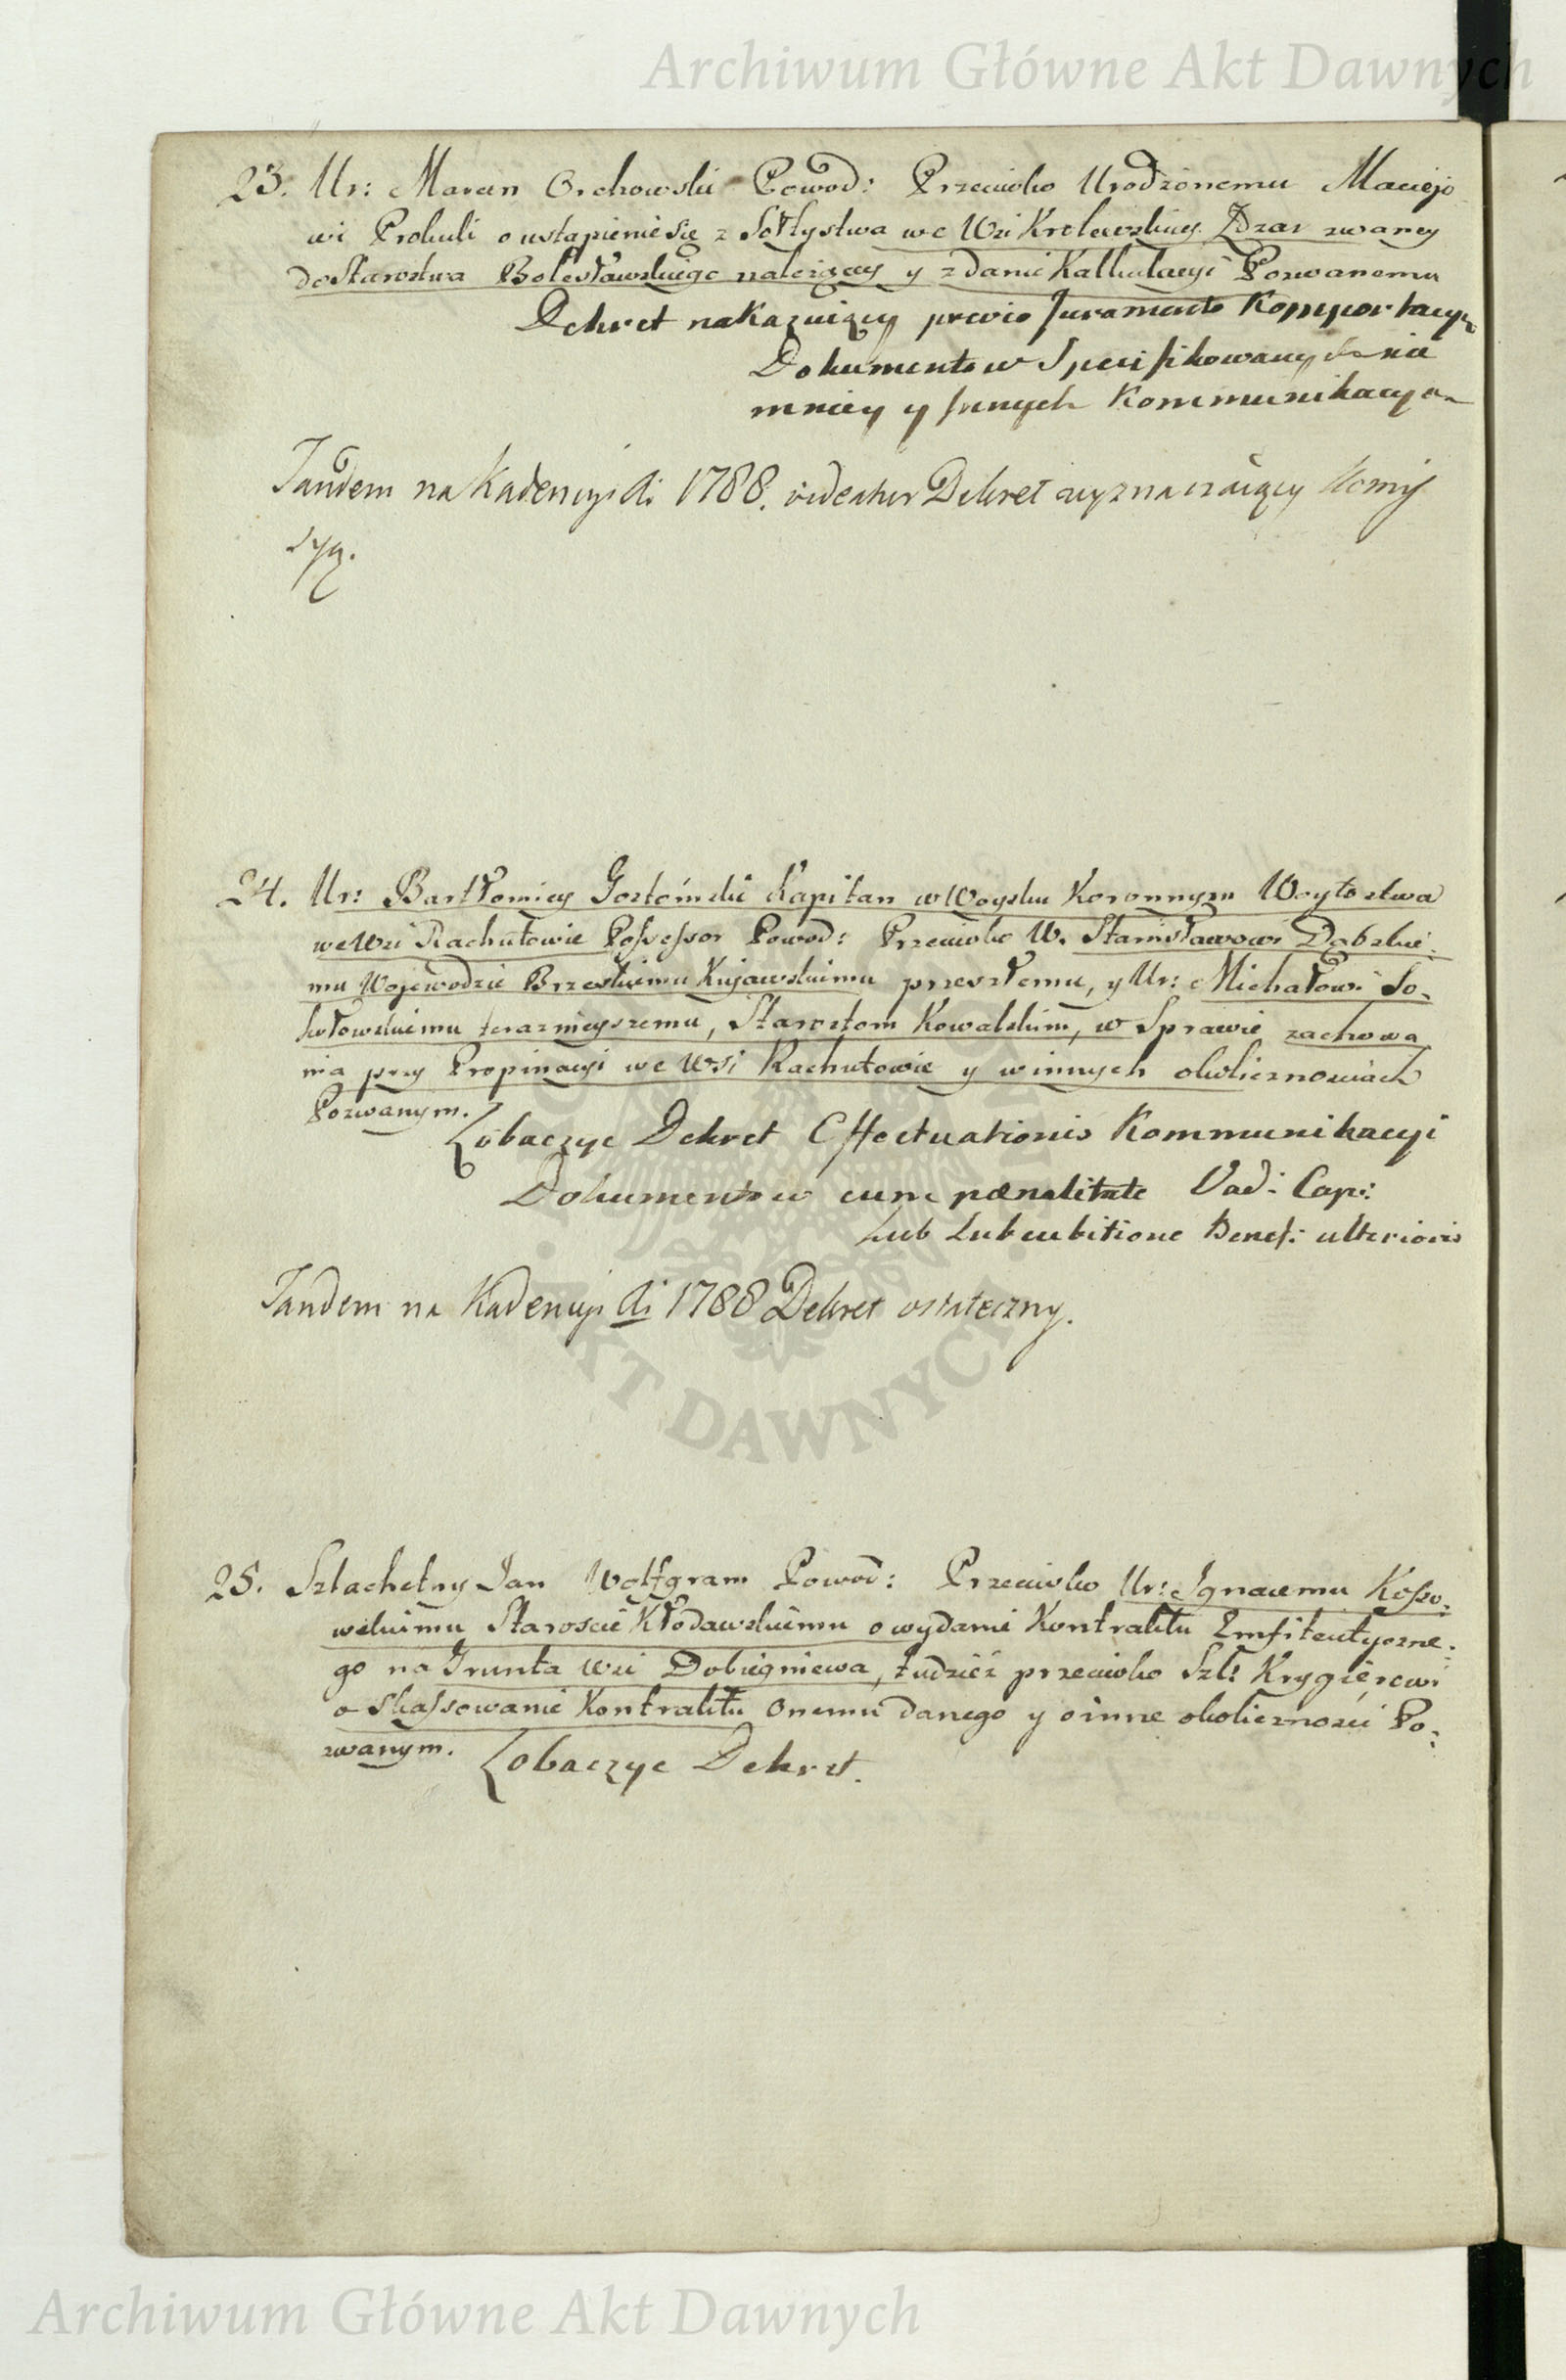 Archiwum Główne Akt Dawnych
23. Ur: Marcin Orchowski Powod: Przeciwko Urodzonemu Maciejo
wi Prokuli o ustąpienie się z Sołtystwa we Wsi Krolewskiey Zdzar zwaney
do Starostwa Bolesławskiego należącey y zdanie Kalkulacyi Pozwanemu
Dekret nakazuiący previo Juramento Komportacyą
Dokumentow Specifikowanych nie
mniey y Innych Kommunikacyą
Tandem na Kadencyi Ai 1788. videatur Dekret wyznaczaiący Komis
syą.
24. Ur: Bartłomiey Gostomski Kapitan w Woysku Koronnym Woytostwa
we Wsi Rachutowie Possessor Powod: Przeciwko W. Stanisławowi Dąbskie:
mu Wojewodzie Brzeskiemu Kujawskiemu przeszłemu, y Ur: Michałowi So-
kołowskiemu teraznieyszemu, Starostom Kowalskim, w Sprawie zachowa
nia przy Propinacyi we Wsi Rachutowie y w innych okolicznosciach
Pozwanym.
Zobaczyc Dekret Effectuationis Kommunikacyi
Dokumentow cum pœnalitate Vad: Cap:
Lub Lubcubitione Benef: ulterioris
Tandem na Kadencyi Ai 1788 Dekret ostateczny.
AKT DAWNYCH
25. Szlachetny Jan Wolfgram Powod: Przeciwko Ur: Ignacemu Kosso:
wskiemu Staroscie Kłodawskiemu o wydanie Kontraktu Emfiteutyczne:
go na Grunta wsi Dobiegniewa, tudzież przeciwko Szl: Krygierowi
o skassowanie Kontraktu Onemu danego y o inne okolicznosci Po:
zwanym.
Zobaczyc Dekret.
Archiwum Główne Akt Dawnych